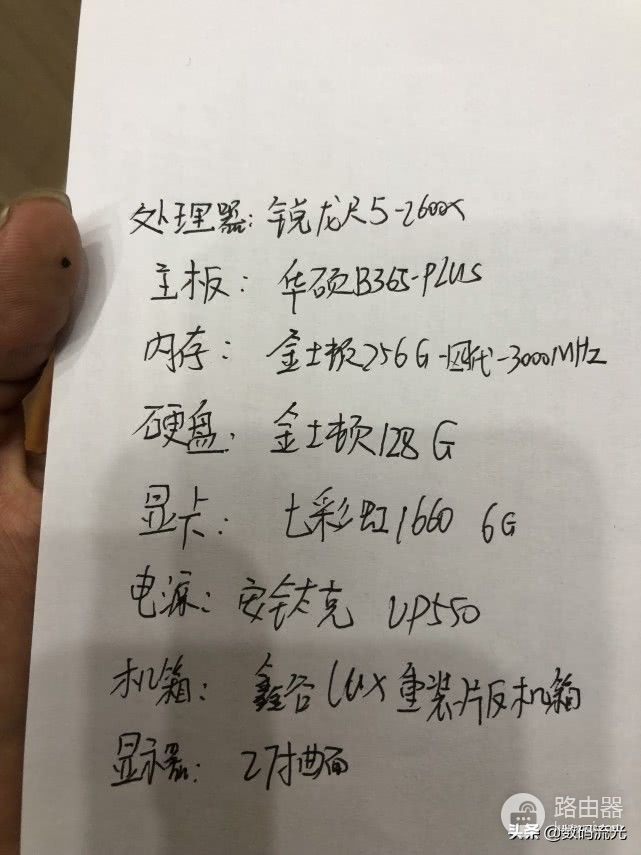 处理器：锐龙R5-2600X
主板：华硕B365-PLUS
内存：金士顿256G-四代-3000MHZ
硬盘：金士顿128G
显卡：七彩虹1660 6G
电源：安钛克 VP550
机箱：鑫谷LUX重装版机箱
显示器：27寸曲面
路由器
头条 @数码流光